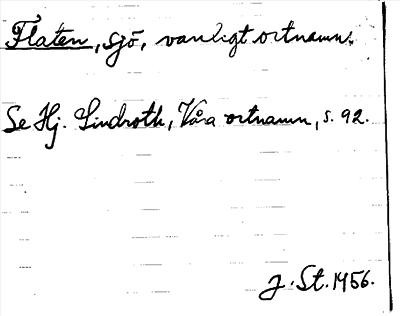 Flaten, sjö, vanligt ortnamn.
Se Hj. Lindroth, Våra ortnamn, s. 92.
J. St. 1956.